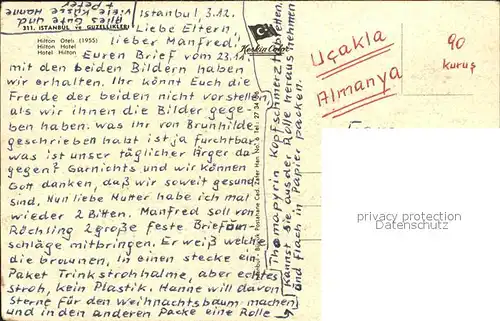 Istanbul, 3.12.
Liebe Eltern,
lieber Manfred!
Euren Brief vom 23.11.
mit den beiden Bildern haben
wir erhalten. Ihr könnt Euch die
Freude der beiden nicht vorstellen,
als wir ihnen die Bilder gege-
ben haben. was ihr von Brunhilde
geschrieben habt ist ja furchtbar,
was ist unser täglicher Ärger da-
gegen? Garnichts und wir können
Gott danken, daß wir soweit gesund
sind. Nun liebe Mutter habe ich mal
wieder 2 Bitten. Manfred soll von
Röchling 2 große feste Briefum-
schläge mitbringen. Er weiß welche
die braunen, In einen stecke ein
Paket Trinkstrohhalme, aber echtes
Stroh, kein Plastik. Hanne will davon
Sterne für den Weihnachtsbaum machen
und in den anderen Packe eine Rolle
Thomapyrin Kopfschmerztabletten.
Kannst sie aus der Rolle heraus nehmen
und flach in Papier packen.
Alles Gute und
viele Küsse Hanne
+ Peter
311. ISTANBUL ve GÜZELLİKLERİ
Hilton Oteli (1955)
Hilton Hotel
Hotel Hilton
Keskin Color
Uçakla
Almanya
90
kuruş
Persönliche Daten
Datenschutz